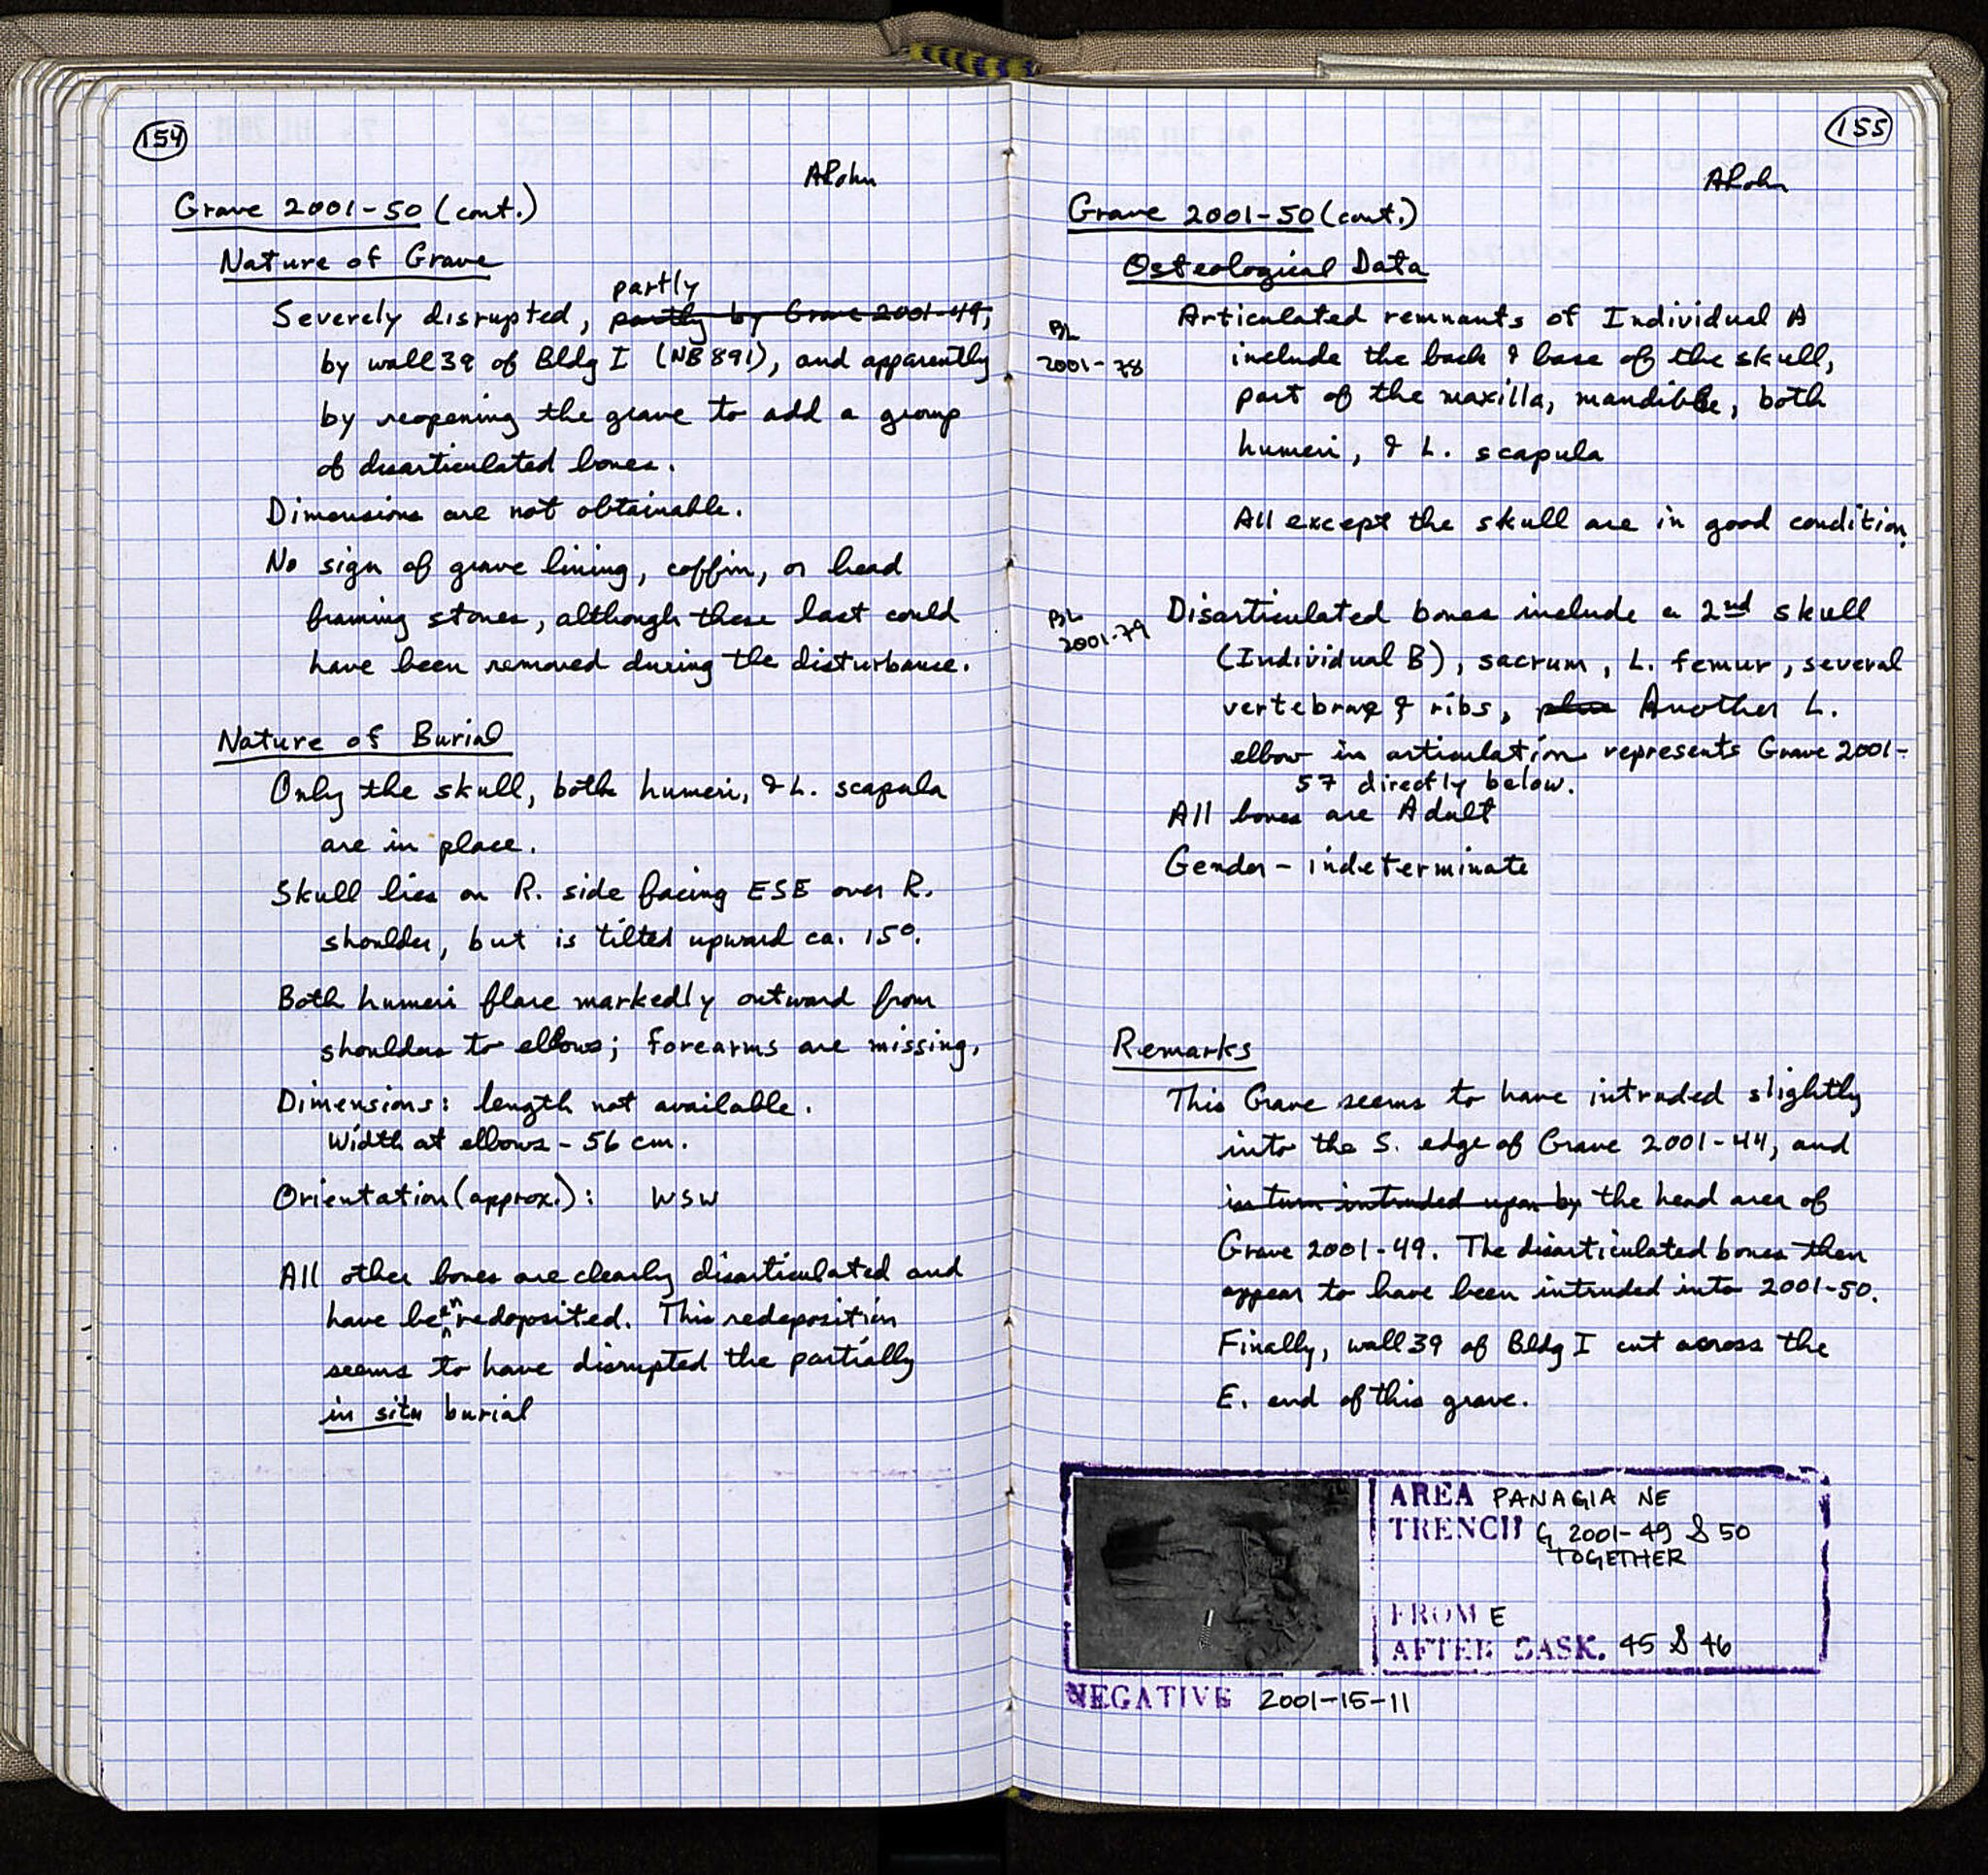 154
ARohn
Grave 2001-50 (cont.)
Nature of Grave
partly
Severely disrupted, partly by Grave 2001-49,
by wall 39 of Bldg I (NB 891), and apparently
by reopening the grave to add a group
of disarticulated bones.
Dimensions are not obtainable.
No sign of grave lining, coffin, or head
framing stones, although these last could
have been removed during the disturbance.
Nature of Burial
Only the skull, both humeri, & L. scapula
are in place.
Skull lies on R. side facing ESE over R.
shoulder, but is tilted upward ca. 15°.
Both humeri flare markedly outward from
shoulders to elbows; forearms are missing.
Dimensions: length not available.
Width at elbows - 56 cm.
Orientation (approx.): WSW
All other bones are clearly disarticulated and
have been redeposited. This redeposition
seems to have disrupted the partially
in situ burial
155
ARohn
Grave 2001-50 (cont.)
Osteological Data
BL
2001-78
Articulated remnants of Individual A
include the back & base of the skull,
part of the maxilla, mandible, both
humeri, & L. scapula
All except the skull are in good condition.
BL
2001-79
Disarticulated bones include a 2nd skull
(Individual B), sacrum, L. femur, several
vertebrae & ribs, plus Another L.
elbow in articulation represents Grave 2001-
57 directly below.
All bones are Adult
Gender - indeterminate
Remarks
This Grave seems to have intruded slightly
into the S. edge of Grave 2001-44, and
in turn intruded upon by the head area of
Grave 2001-49. The disarticulated bones then
appear to have been intruded into 2001-50.
Finally, wall 39 of Bldg I cut across the
E. end of this grave.
AREA PANAGIA NE
TRENCH G 2001-49 & 50
TOGETHER
FROM E
AFTER BASK. 45 & 46
NEGATIVE 2001-15-11